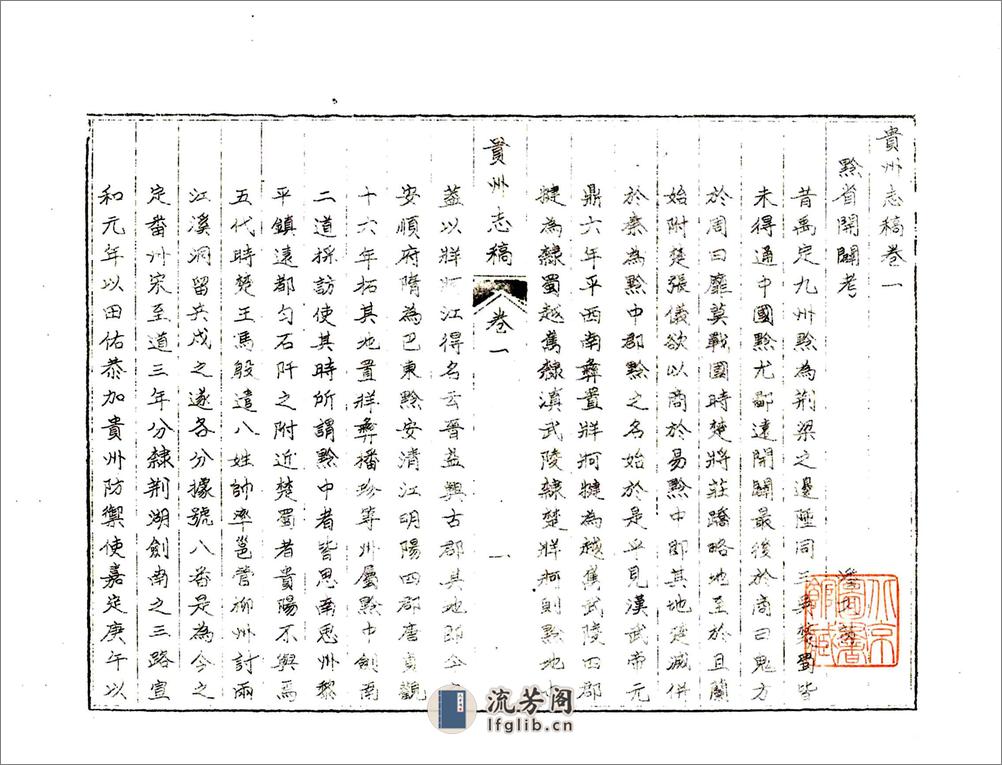 貴州志稿卷一
黔省開闢考
昔禹定九州黔為荆梁之邊陲同 楚蜀皆
未得通中國黔尤鄙遠開闢最後於商曰鬼方
於周曰靡莫戰國時楚將莊蹻略地至於且蘭
始附楚張儀欲以商於易黔中即其地楚滅併
於秦為黔中郡黔之名始於是乎見漢武帝元
鼎六年平西南彝置牂牁犍為越嶲武陵四郡
犍為隸蜀越嶲隸滇武陵隸楚牂牁則黔地也
貴州志稿 卷一 一
蓋以牂牁江得名云晉益興古郡其地即今之
安順府隋為巴東黔安清江明陽四郡唐貞觀
十六年拓其地置牂彝播珍等州屬黔中劍南
二道採訪使其時所謂黔中者皆思南思州黎
平鎮遠都勻石阡之附近楚蜀者貴陽不與焉
五代時楚王馬殷遣八姓帥率邕管柳州討兩
江溪洞留兵戍之遂各分據號八番是為今之
定番州宋至道三年分隸荆湖劍南之三路宣
和元年以田佑恭加貴州防禦使嘉定庚午以
流芳阁
lfglib.cn